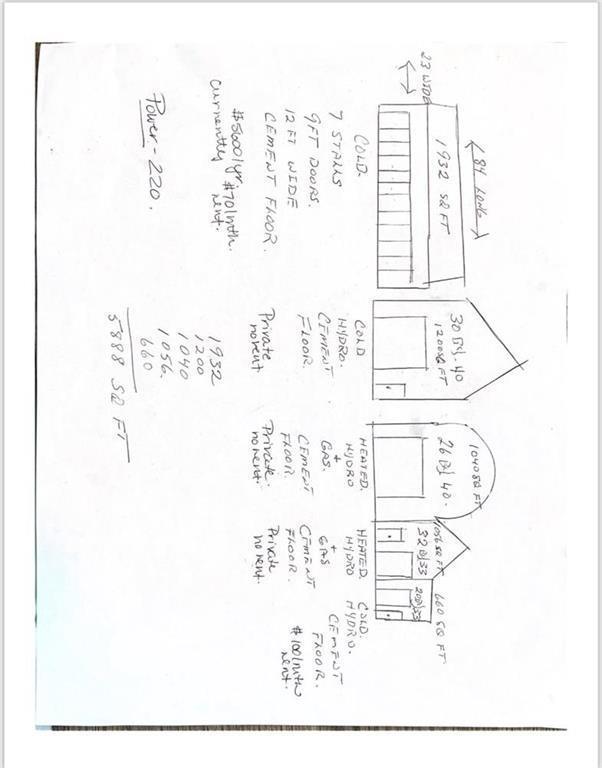 23 WIDE
84 LONG
1932 SQ FT
COLD.
7 STALLS
9FT DOORS.
12 FT WIDE
CEMENT FLOOR.
$5600/yr.
currently $70/mth.
rent.
30 By. 40
1200SQ FT
COLD
HYDRO.
CEMENT
FLOOR.
Private
no rent.
1040 SQ FT
26 By 40.
HEATED.
HYDRO
+
GAS.
CEMENT
FLOOR.
Private.
no rent.
1056 SQ FT
32 By 33
HEATED.
HYDRO
+
GAS
CEMENT
FLOOR.
Private
no rent.
660 SQ FT
20 By 33
COLD.
HYDRO.
CEMENT
FLOOR.
$100/mth
rent.
Power - 220.
1932
1200
1040
1056.
660
5888 SQ FT